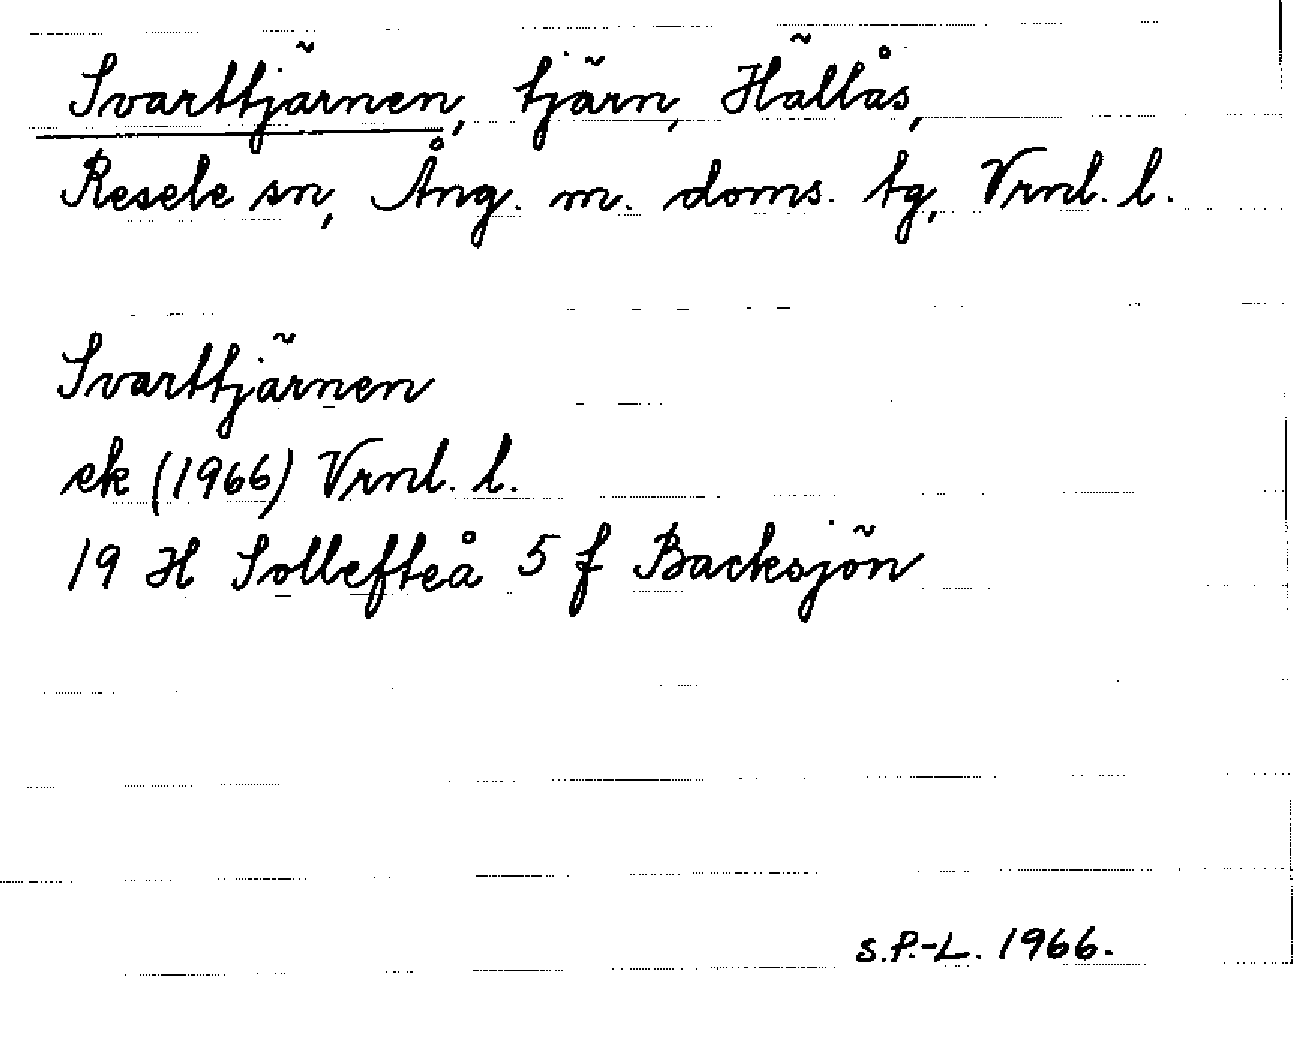 Svarttjärnen, tjärn, Hällås,
Resele sn, Ång. m. doms. tg, Vrnl. l.
Svarttjärnen
ek (1966) Vrnl. l.
19 H Sollefteå 5 f Backsjön
S.P.-L. 1966.